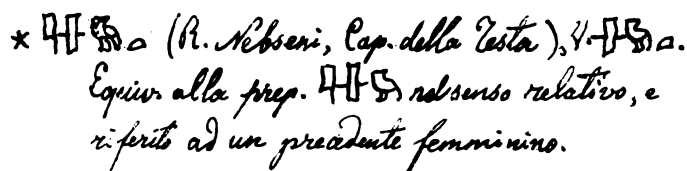 * (R. Nebseni, Cap. della Testa), V.
Equiv. alla prep. nel senso relativo, e
riferito ad un precedente femminino.